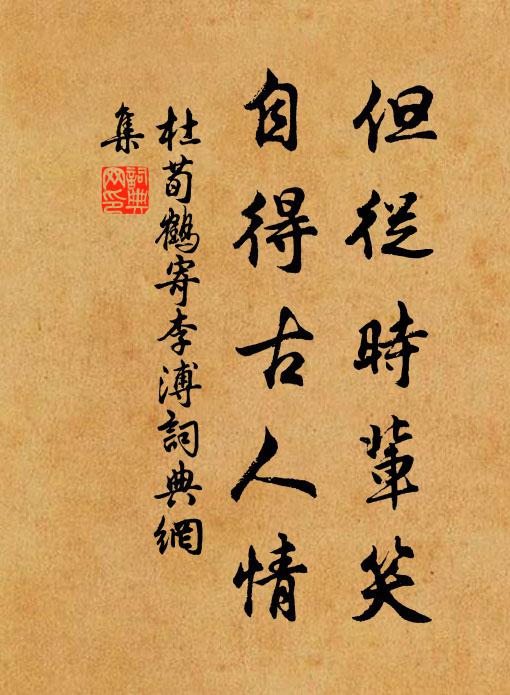 但從時輩笑
自得古人情
杜荀鶴寄李溥詞典網
集
詞典
网印